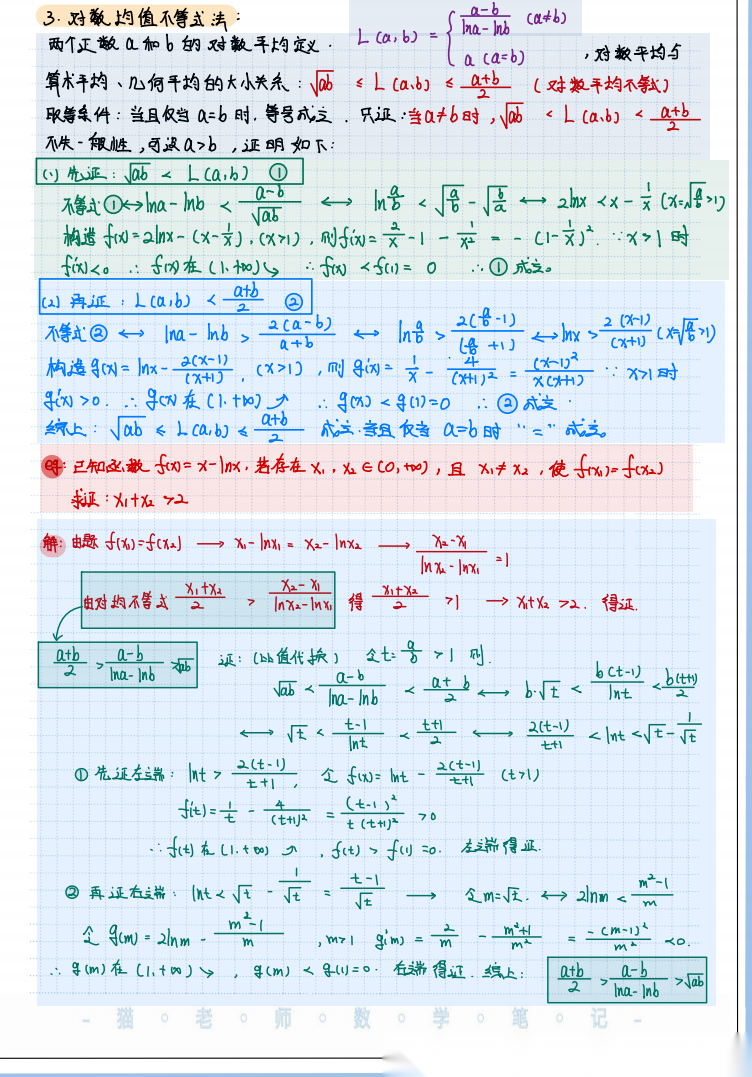 3. 对数均值不等式法:
两个正数 a 和 b 的对数平均定义. L(a,b) = { (a-b)/(lna-lnb) (a≠b) ; a (a=b) , 对数平均与
算术平均、几何平均的大小关系: √ab ≤ L(a,b) ≤ (a+b)/2 (对数平均不等式)
取等条件: 当且仅当 a=b 时, 等号成立. 只证: 当a≠b时, √ab < L(a,b) < (a+b)/2
不失一般性, 可设 a>b, 证明如下:
(1) 先证: √ab < L(a,b) ①
不等式①↔lna-lnb < (a-b)/√ab ↔ ln(a/b) < √(a/b) - √(b/a) ↔ 2lnx < x - 1/x (x=√(a/b)>1)
构造 f(x)=2lnx-(x-1/x), (x>1), 则f'(x)= 2/x -1 - 1/x² = -(1-1/x)². ∵ x>1 时
f'(x)<0 ∴ f(x)在(1,+∞)↘ ∴ f(x) < f(1) = 0 ∴ ① 成立。
(2) 再证: L(a,b) < (a+b)/2 ②
不等式② ↔ lna-lnb > 2(a-b)/(a+b) ↔ ln(a/b) > 2(a/b-1)/(a/b+1) ↔ lnx > 2(x-1)/(x+1) (x=√(a/b)>1)
构造 g(x)= lnx - 2(x-1)/(x+1), (x>1), 则 g'(x)= 1/x - 4/(x+1)² = (x-1)²/x(x+1) ∵ x>1时
g'(x)>0. ∴ g(x)在(1,+∞)↗ ∴ g(x) < g(1)=0 ∴ ② 成立.
综上: √ab ≤ L(a,b) ≤ (a+b)/2 成立. 当且仅当 a=b 时 "=" 成立。
例: 已知函数 f(x)=x-lnx, 若存在 x₁, x₂∈(0,+∞), 且 x₁≠x₂, 使 f(x₁)=f(x₂)
求证: x₁+x₂>2
解: 由题 f(x₁)=f(x₂) → x₁-lnx₁ = x₂-lnx₂ → (x₂-x₁)/(lnx₂-lnx₁) =1
由对均不等式 (x₁+x₂)/2 > (x₂-x₁)/(lnx₂-lnx₁) 得 (x₁+x₂)/2 >1 → x₁+x₂>2. 得证.
(a+b)/2 > (a-b)/(lna-lnb) > √ab
证: (比值代换) 令t= a/b >1 则.
√ab < (a-b)/(lna-lnb) < (a+b)/2 ↔ b·√t < b(t-1)/lnt < b(t+1)/2
↔ √t < (t-1)/lnt < (t+1)/2 ↔ 2(t-1)/(t+1) < lnt < √t - 1/√t
① 先证左端: lnt > 2(t-1)/(t+1), 令 f(x)= lnt - 2(t-1)/(t+1) (t>1)
f'(t)= 1/t - 4/(t+1)² = (t-1)²/t(t+1)² >0
∴ f(t)在(1,+∞)↗, f(t) > f(1)=0. 左端得证.
② 再证右端: lnt < √t - 1/√t = (t-1)/√t → 令m=√t. ↔ 2lnm < (m²-1)/m
令 g(m)= 2lnm - (m²-1)/m, m>1 g'(m) = 2/m - (m²+1)/m² = -(m-1)²/m² <0.
∴ g(m)在(1,+∞)↘, g(m) < g(1)=0. 右端得证. 综上: (a+b)/2 > (a-b)/(lna-lnb) > √ab
- 猫。老。师。数。学。笔。记 -